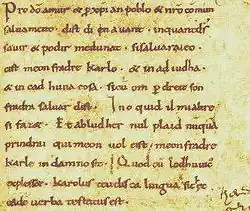 Pro dō amur & p xp̄ian poblo & nr̄o commun
saluament. dist di en auant. inquantdś
sauir & podir medunat. sisaluaraieo.
cist meon fradre karlo. & in ad iudha.
& in cad huna cosa. sicu om p dreit son
fradra saluar dist. Ino quid il mi altre
si faz&. Et ab ludher nul plaid nūquā
prindrai qui meon uol cist. meon fradre
karle in damno sit. Quod cū lodhuuic
explesset. karolus teudisca lingua sic hęc
eadē uerba testatus est.